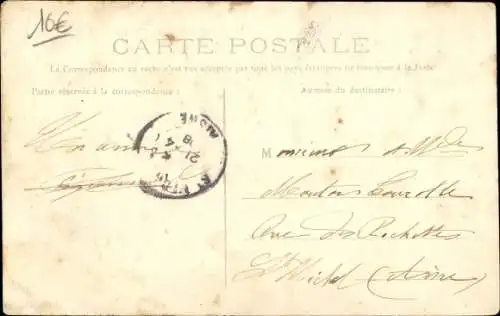 16€
CARTE POSTALE
La Correspondance au recto n'est pas acceptée par tous les pays étrangers (se renseigner à la Poste)
Partie réservée à la correspondance :
Adresse du destinataire :
Un ami
AISNE
Monsieur et Mde
Rue des Rochettes
St Michel (Aisne)